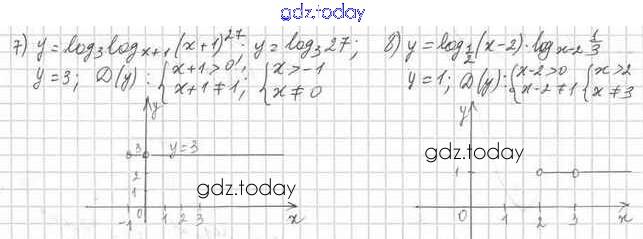 gdz.today
7) y = log₃ log_{x+1} (x+1)^{27}; y = log₃ 27;
y = 3; D(y): { x+1 > 0; x+1 ≠ 1; { x > -1 x ≠ 0
y
3 y = 3
2
1
-1 0 1 2 3 x
gdz.today
8) y = log_{1/2} (x-2) · log_{x-2} 1/3
y = 1; D(y): { x-2 > 0 x-2 ≠ 1 { x > 2 x ≠ 3
y
gdz.today
1
0 1 2 3 x